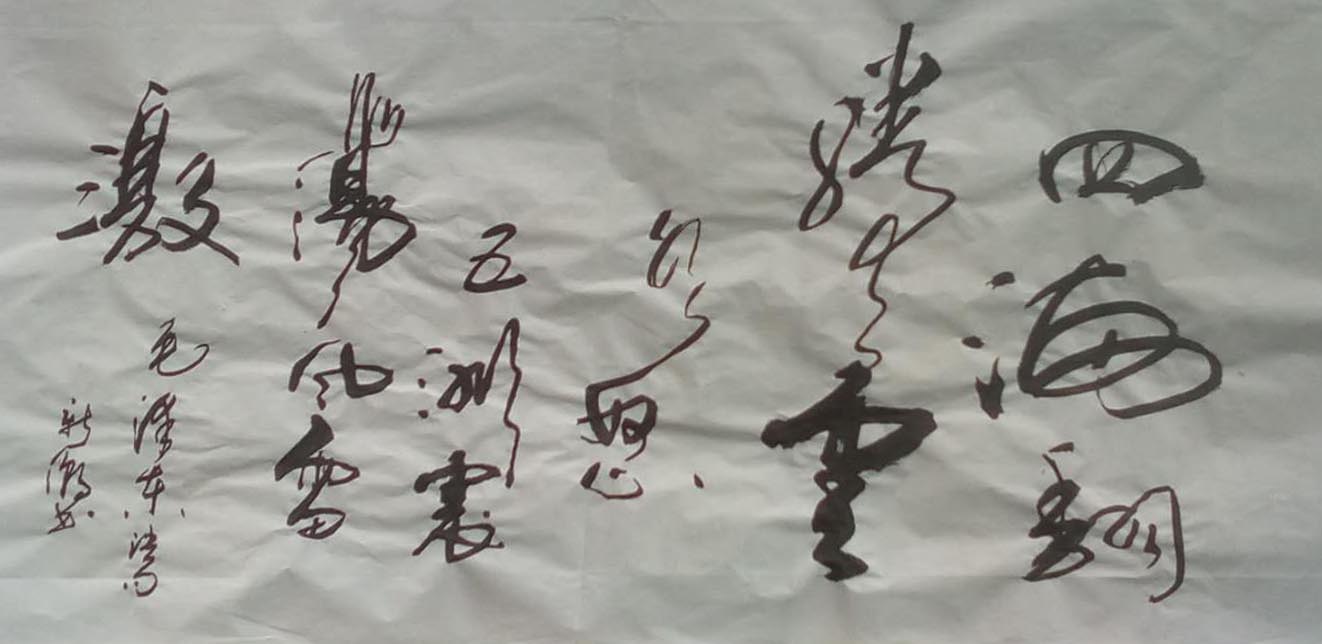 四海翻
腾雲
水怒
五洲震
蕩风雷
激
毛泽东